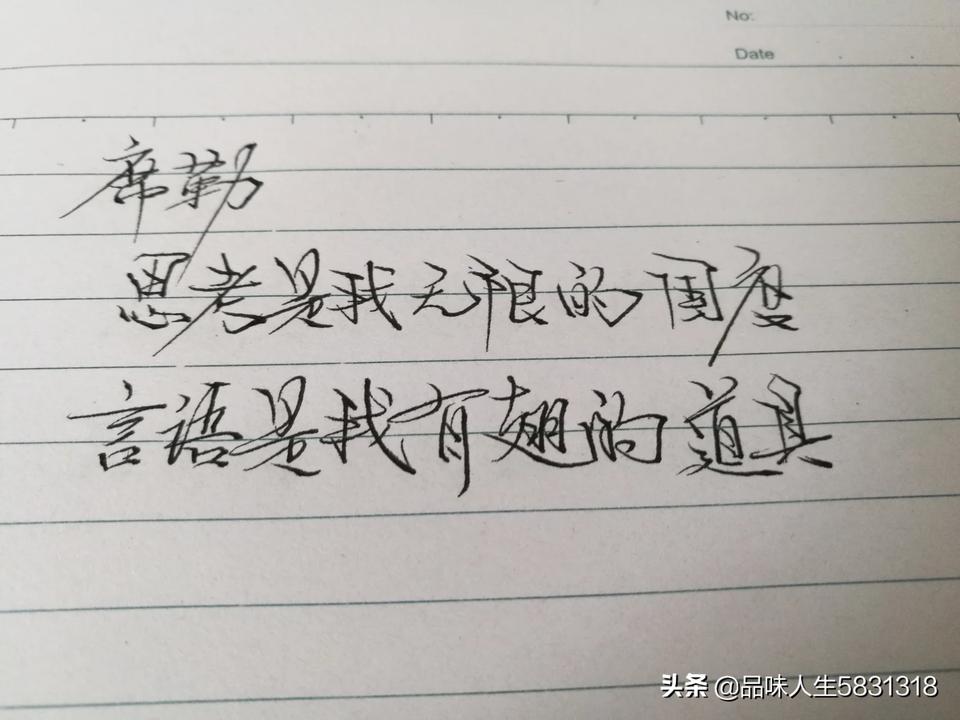 No:
Date
席勒
思考是我无限的国度
言語是我有翅的道具
头条 @品味人生5831318